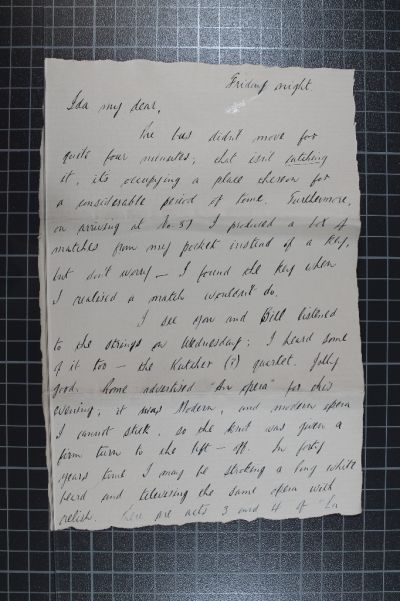 Friday night.
Ida my dear,
The bus didn't move for
quite four minutes; that isn't catching
it, it's occupying a place thereon for
a considerable period of time. Furthermore,
on arriving at No. 57 I produced a box of
matches from my pocket instead of a key,
but don't worry – I found the key when
I realised a match wouldn't do.
I see you and Bill listened
to the strings on Wednesday; I heard some
of it too – the Kutcher (?) quartet. Jolly
good. Rome advertised "An opera" for this
evening; it was Modern, and modern opera
I cannot stick, so the knob was given a
firm turn to the left – off. In forty
years time I may be stroking a long white
beard and televising the same opera with
relish. Here are acts 3 and 4 of "La